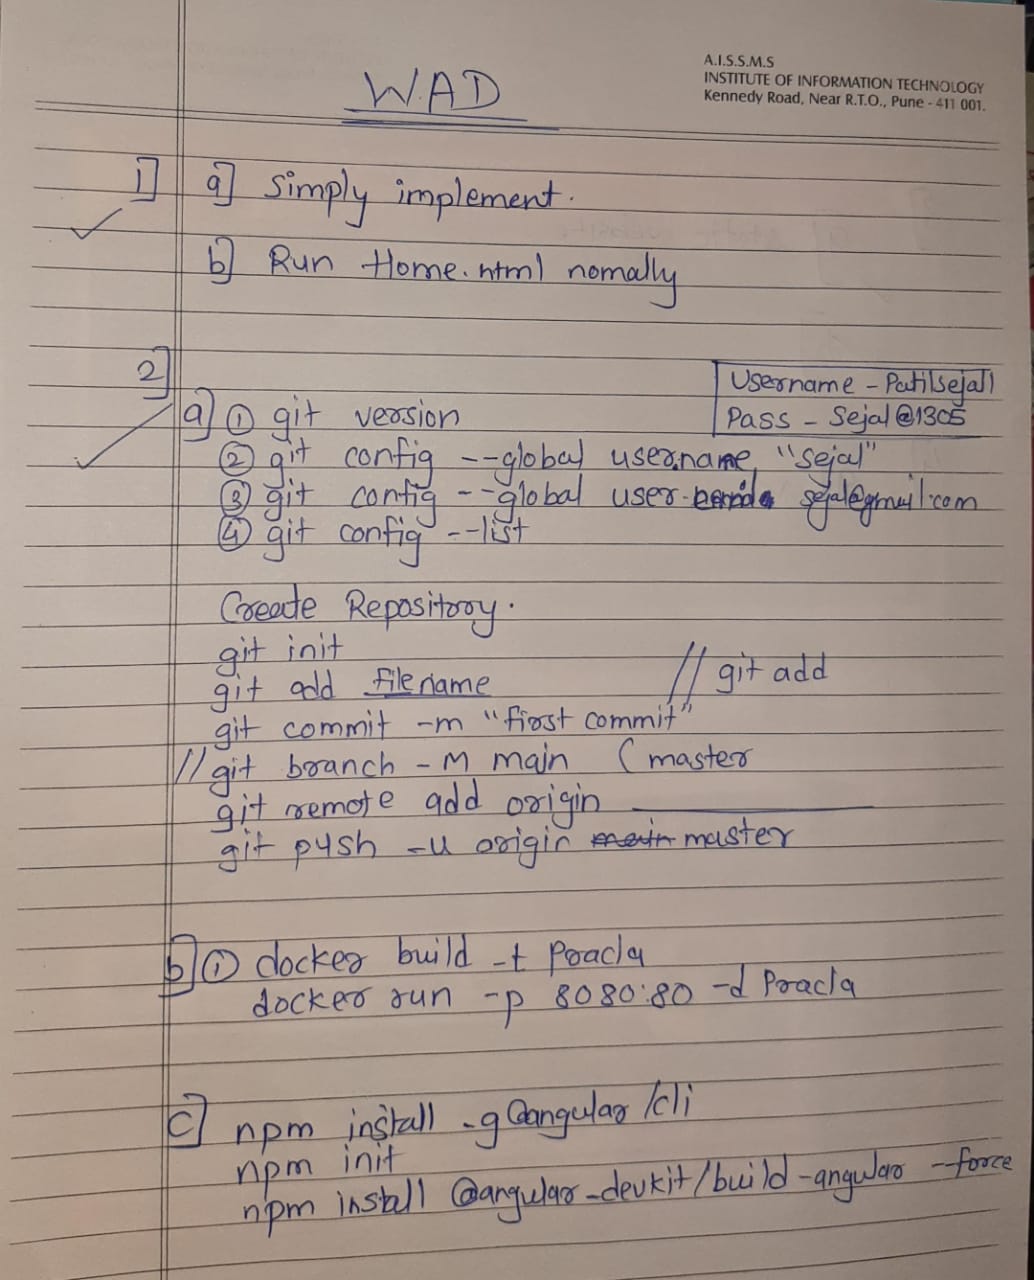 A.I.S.S.M.S
INSTITUTE OF INFORMATION TECHNOLOGY
Kennedy Road, Near R.T.O., Pune - 411 001.
W.A.D
1] a] Simply implement.
b] Run Home.html nomally
2]
Username - Patilsejal1
Pass - Sejal@1305
a] ① git version
② git config --global user.name "sejal"
③ git config --global user. sejal@gmail.com
④ git config --list
Create Repository.
git init
git add filename // git add
git commit -m "first commit"
// git branch -M main ( master
git remote add origin ________
git push -u origin main master
b] ① docker build -t Pracla
docker run -p 8080:80 -d Pracla
c] npm install -g @angular /cli
npm init
npm install @angular-devkit/build-angular --force